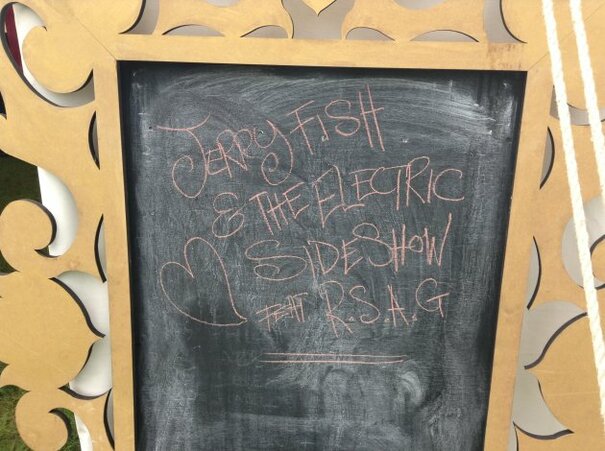 JERRY FISH
& THE ELECTRIC
SIDESHOW
FEAT R.S.A.G